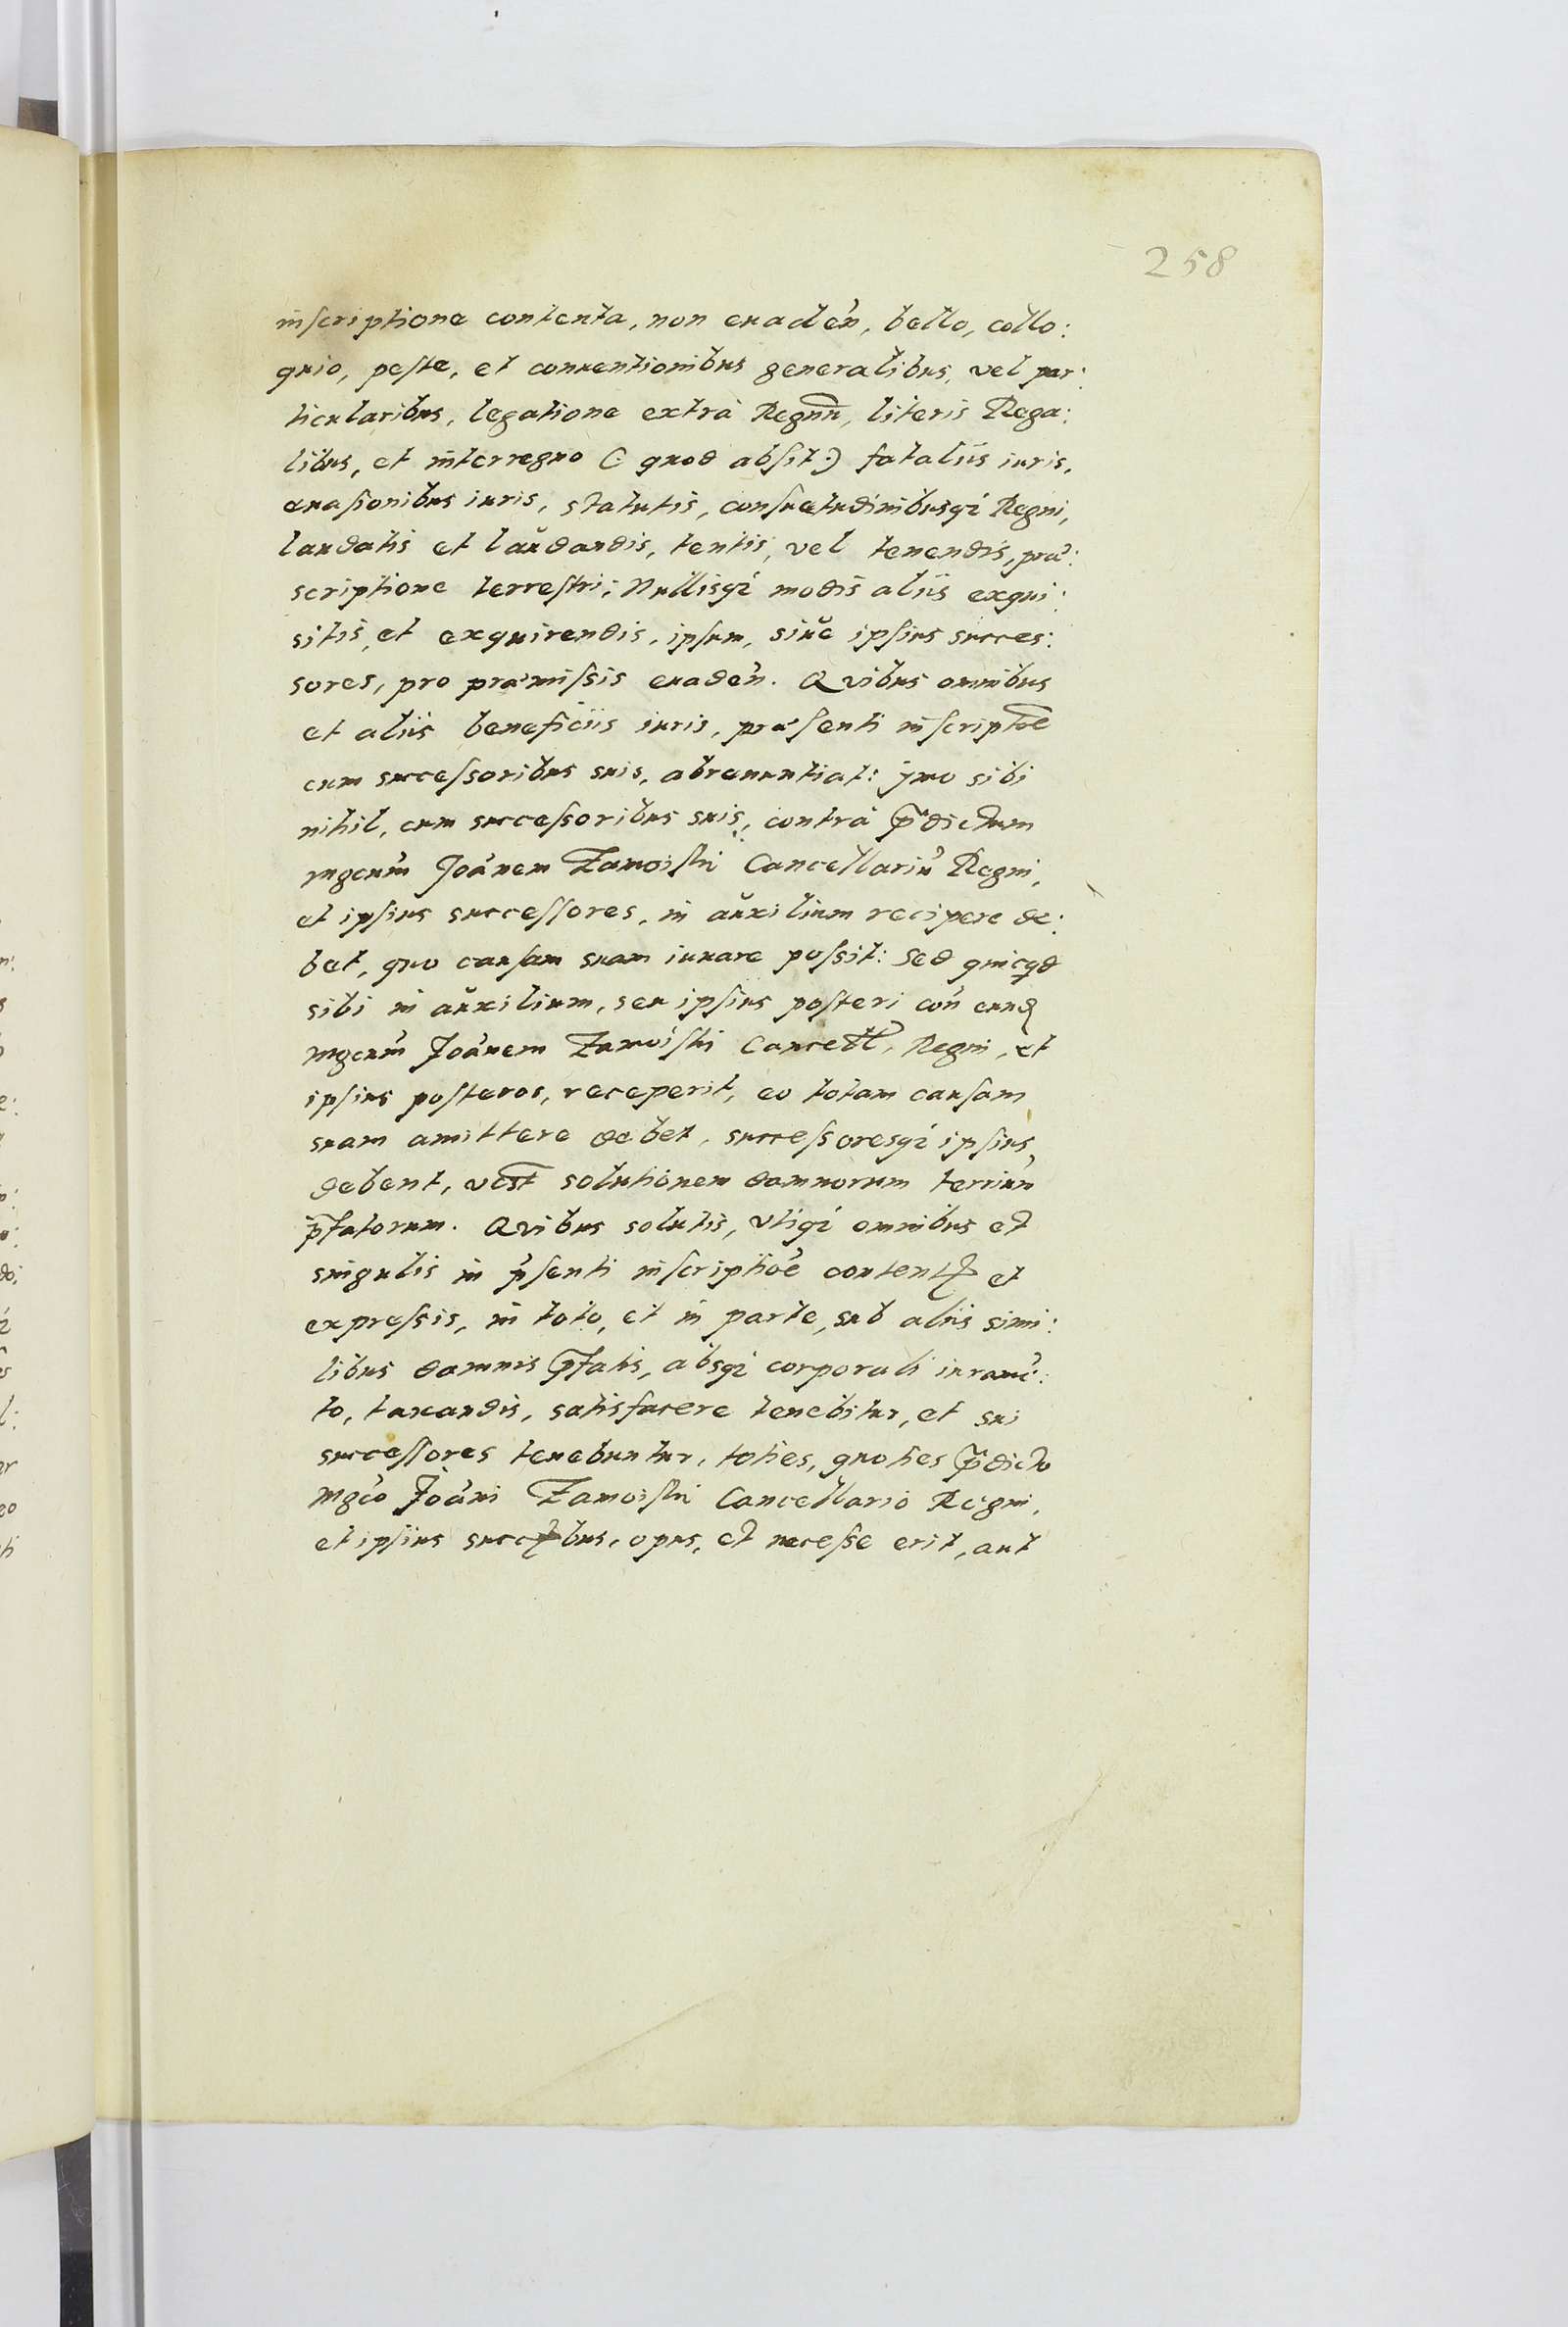 258
inscriptione contenta, non euadeń, bello, collo:
quio, peste, et conuentionibus generalibus, vel par:
ticularibus, legatione extrà Regnũ, literis Rega:
libus, et interregno (: quod absit :) fataliis iuris,
euasionibus iuris, statutis, consuetudinibusq́ Regni,
laudatis et laŭdandis, tentis, vel tenendis, præ:
scriptione terrestri; Nullisq́ modis aliis exqui:
sitis, et exquirendis, ipsum, siŭe ipsius succes:
sores, pro præmissis euadeń. Qvibus omnibus
et aliis beneficiis iuris, præsenti inscriptõe
cum successoribus suis, abrenuntiat: ymo sibi
nihil, cum successoribus suis, contrà p̃dictum
mgcuḿ Joãnem Zamoiski Cancellariũ Regni,
et ipsius successores, in aŭxilium recipere de:
bet, quo causam suam iuuare possit: Sed quicqd
sibi in aŭxilium, seu ipsius posteri coń eund
mgcuḿ Joãnem Zamoiski Cancell, Regni, et
ipsius posteros, receperit, eo totam causam
suam amittere debet, successoresq́ ipsius
debent, vest solutionem damnorum terriuń
p̃fatorum. Qvibus solutis, vtiq́ omnibus et
singulis in p̃senti inscriptiõe content et
expressis, in toto, et in parte, sub aliis simi:
libus damnis p̃fatis, absq́ corporali iuramẽ:
to, taxandis, satisfacere tenebitur, et sui
successores tenebuntur, toties, quoties p̃dicto
mgćo Joãni Zamoiski Cancellario Regni,
et ipsius succbus, opus, et necesse erit, aut